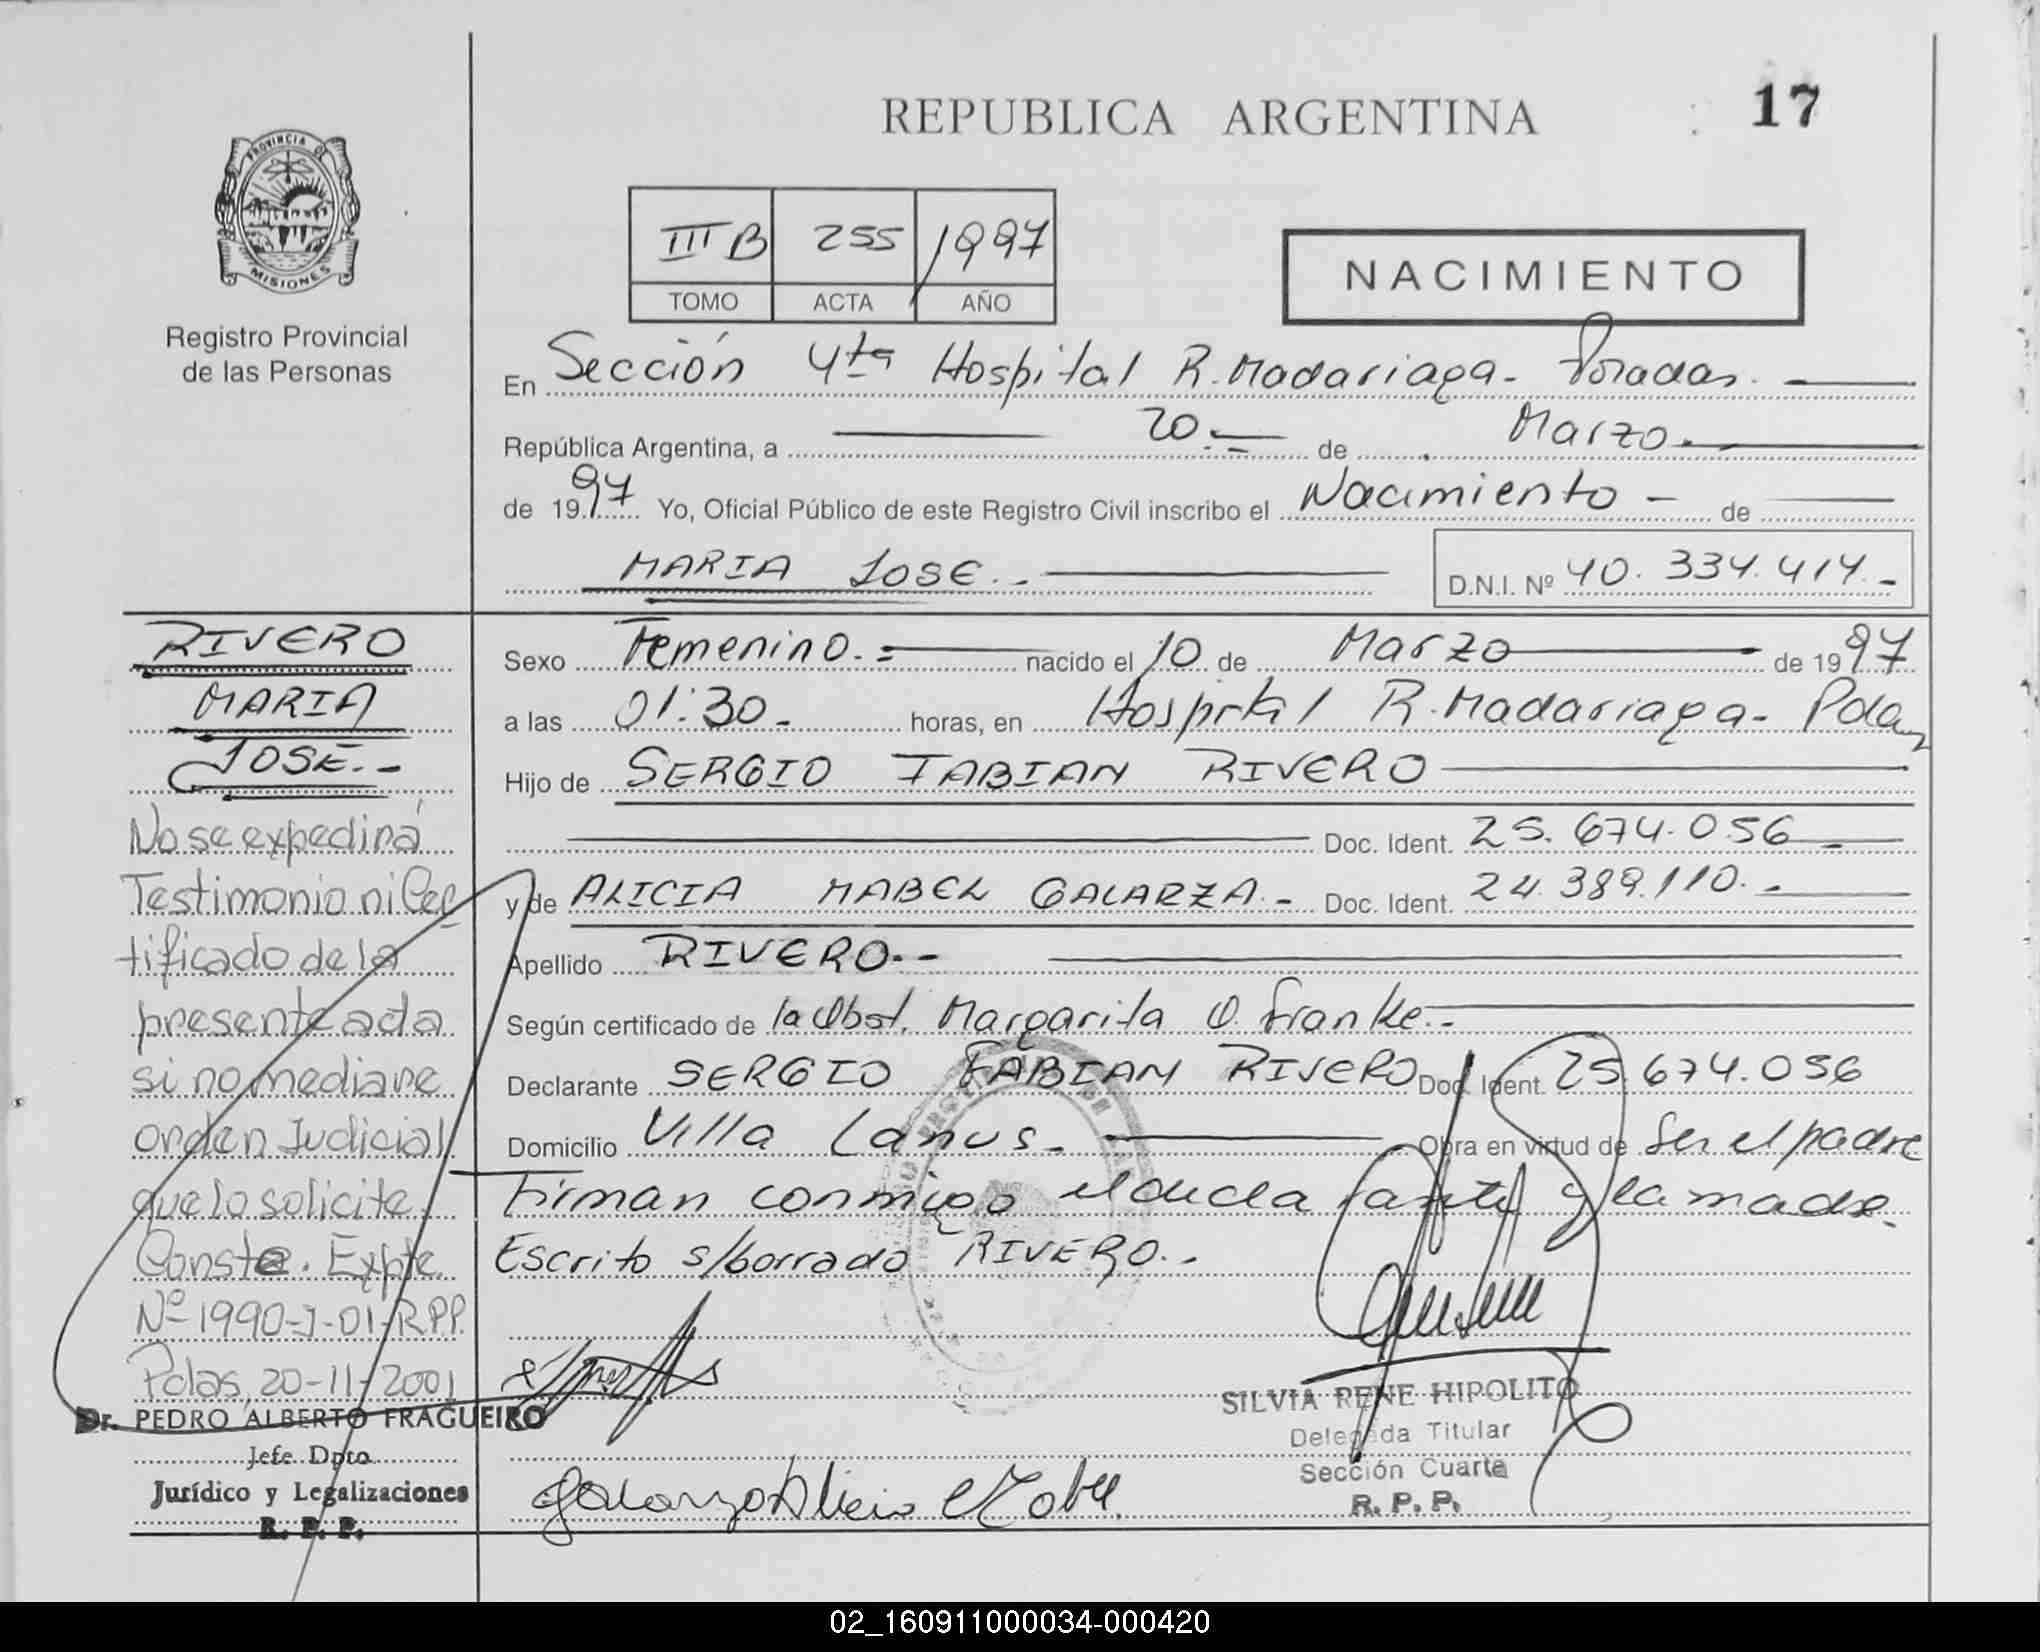 REPUBLICA ARGENTINA
17
PROVINCIA DE
MISIONES
Registro Provincial
de las Personas
III B 255 1997
TOMO ACTA AÑO
NACIMIENTO
En Sección 4ta Hospital R. Madariaga - Posadas. -
República Argentina, a 20.- de Marzo.-
de 1997 Yo, Oficial Público de este Registro Civil inscribo el Nacimiento - de
MARIA JOSE.- D.N.I. Nº 40.334.414.-
RIVERO
MARIA
JOSE.-
No se expedirá
Testimonio ni Cer
tificado de la
presente acta
si no mediare
orden Judicial
que lo solicite.
Conste. Expte
Nº 1990-J-01-R.P.P.
Pdas, 20-11-2001
Dr. PEDRO ALBERTO FRAGUEIRO
Jefe Dpto.
Jurídico y Legalizaciones
R. P. P.
Sexo Femenino.- nacido el 10 de Marzo de 1997
a las 01:30.- horas, en Hospital R. Madariaga - Pdas
Hijo de SERGIO FABIAN RIVERO
Doc. Ident. 25.674.056
y de ALICIA MABEL GALARZA.- Doc. Ident. 24.389.110.-
Apellido RIVERO.--
Según certificado de la Obst. Margarita O. Franke.-
Declarante SERGIO FABIAN RIVERO Doc. Ident. 25.674.056
Domicilio Villa Lanus.- Obra en virtud de Ser el padre
Firman conmigo el declarante y la madre.
Escrito s/borrado RIVERO.-
SILVIA RENE HIPOLITO
Delegada Titular
Sección Cuarta
R. P. P.
Galarza Alicia Mabel.
02_160911000034-000420